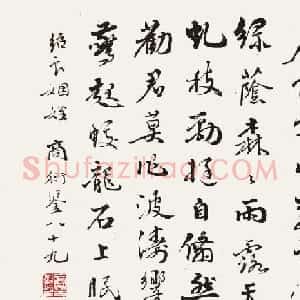 綠蔭森々雨露
虬枝勁挺自翛然
勸君莫作波濤響
驚起蛟龍石上眠
商衍鎏八十九
Shufaziliao.com